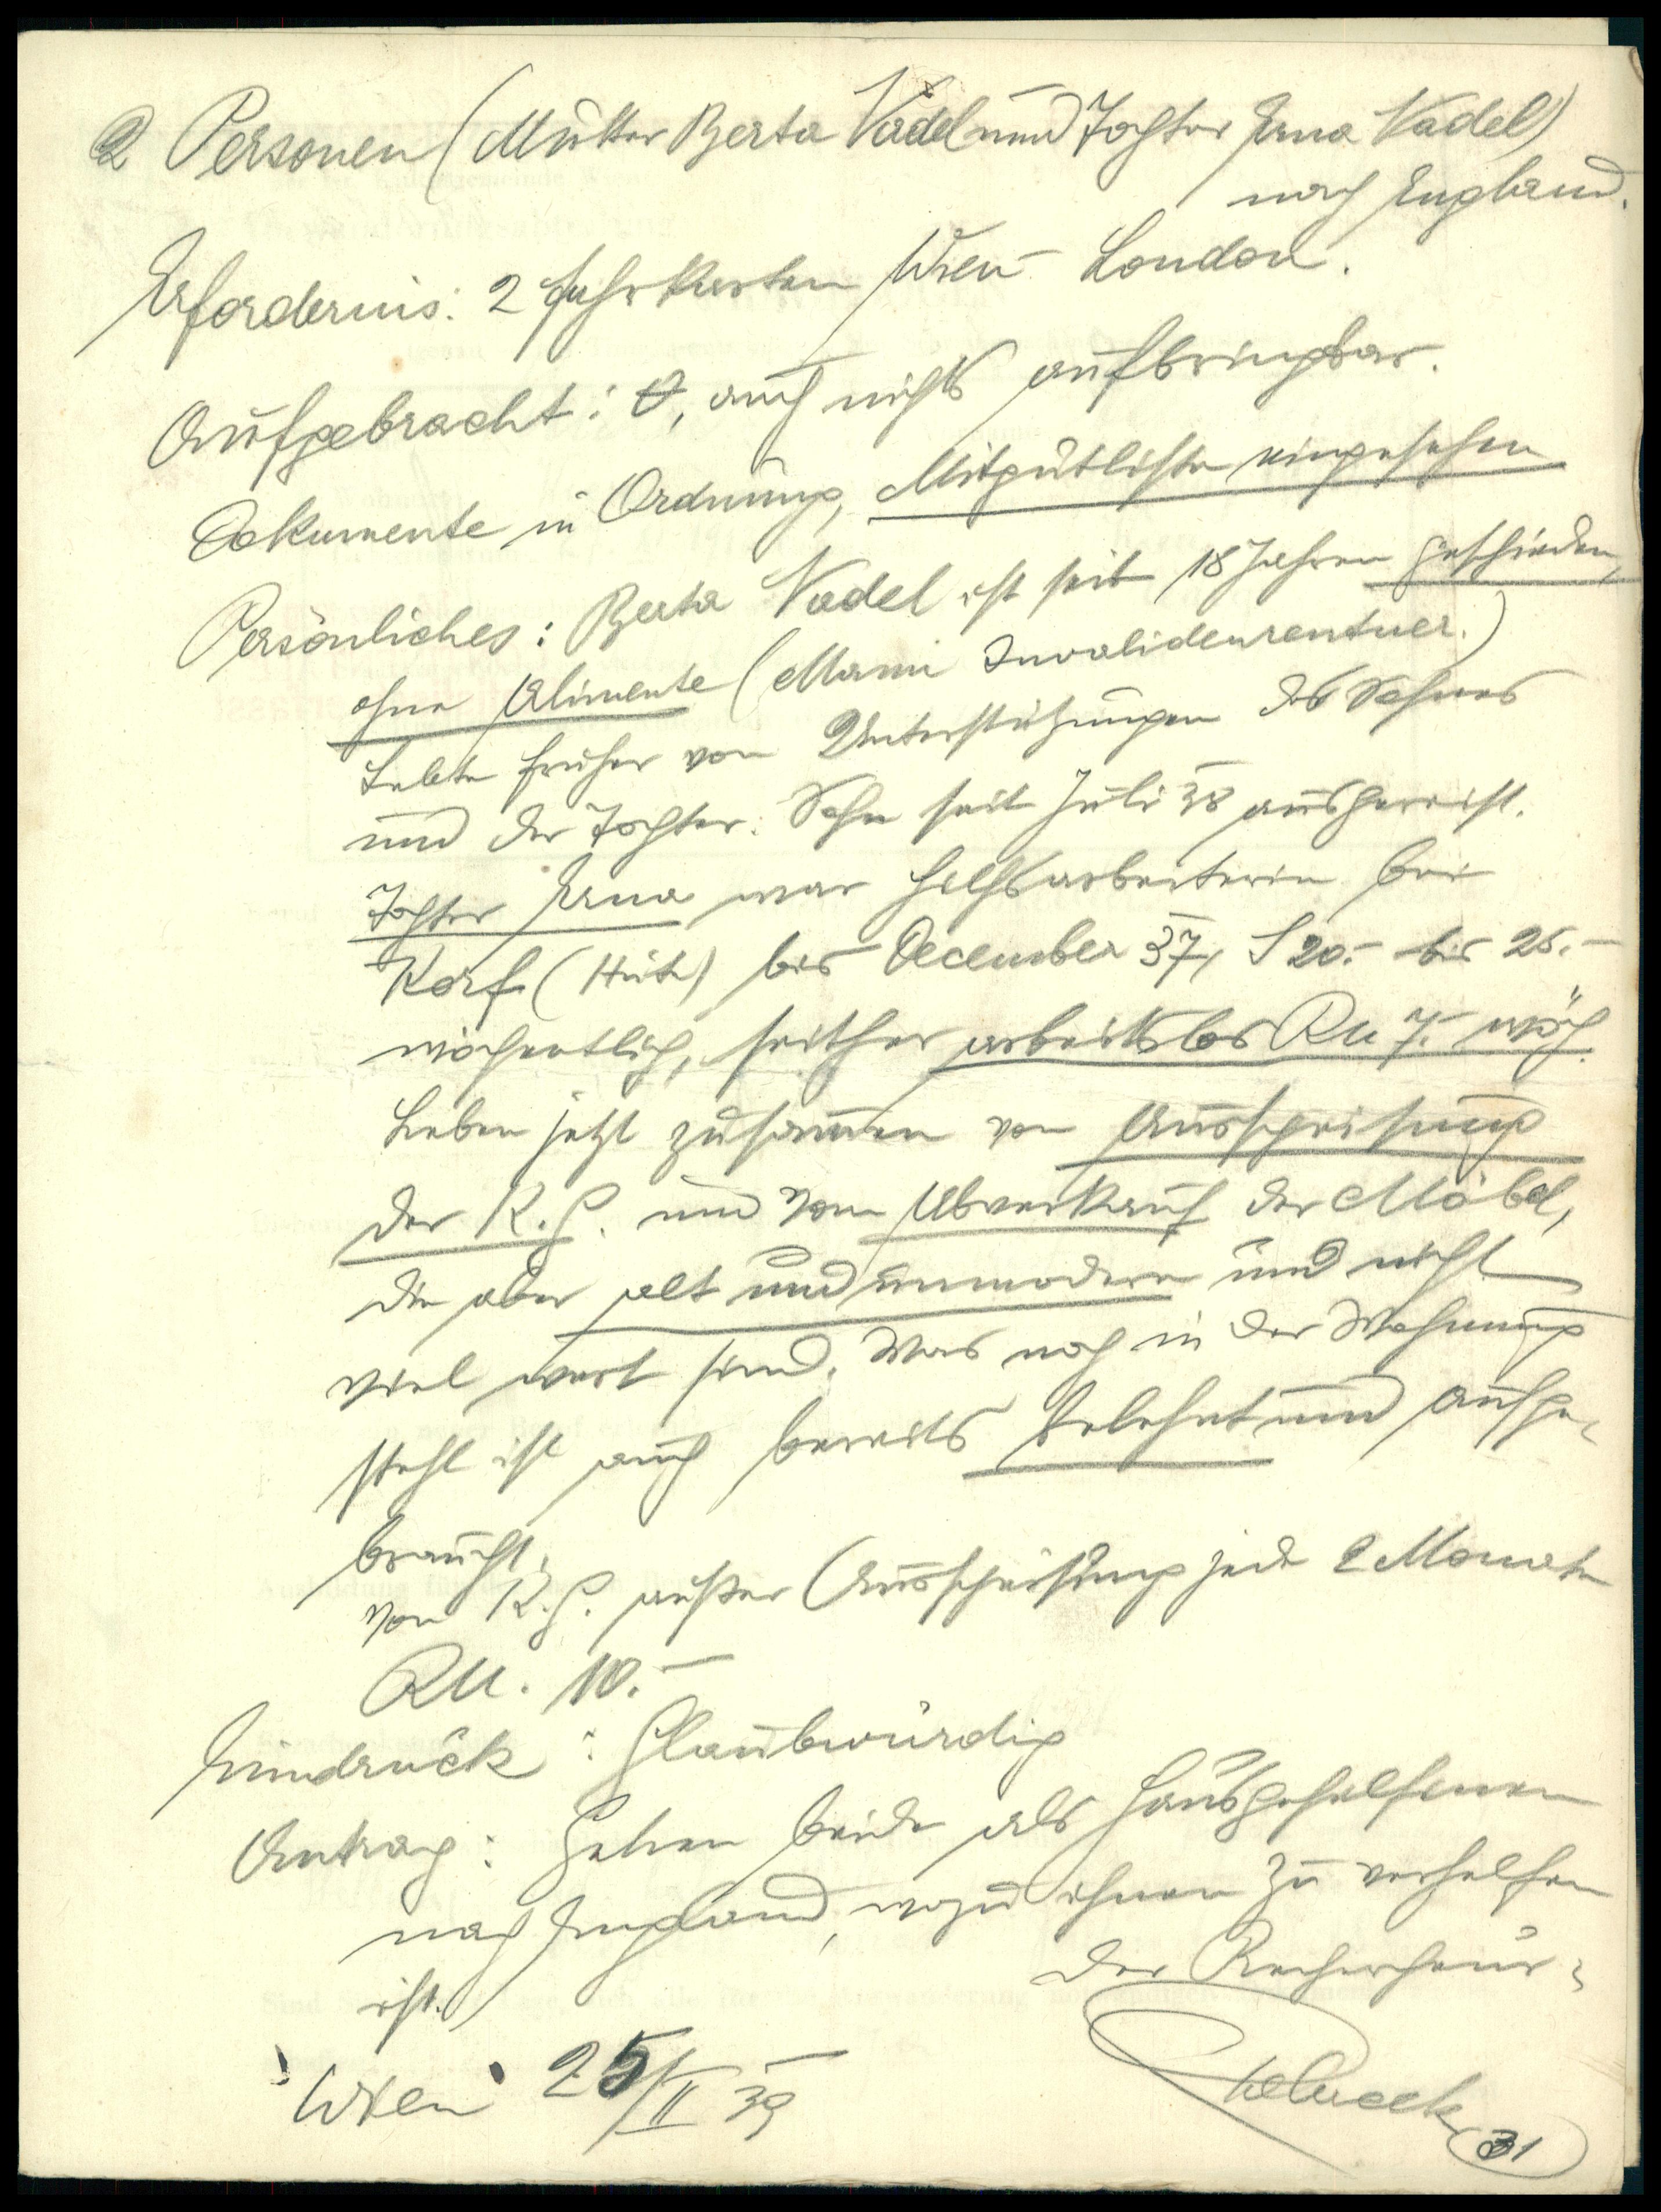 2 Personen (Mutter Berta Nadel und Tochter Erna Nadel)
nach England.
Erfordernis: 2 Fahrkarten Wien - London.
Aufgebracht: 0, auch nichts aufbringbar.
Dokumente in Ordnung, Mitgutliste eingesehen
Persönliches: Berta Nadel ist seit 18 Jahren geschieden,
ohne Alimente (Mann Invalidenrentner.)
Lebte früher von Unterstützungen des Sohnes
und der Tochter. Sohn seit Juli 38 ausgereist.
Tochter Erna war Hilfsarbeiterin bei
Korf (Hüte) bis December 37, S 20.- bis 25.-
wöchentlich, seither arbeitslos RM 7.- wöch.
Leben jetzt zusammen von Ausspeisung
der K.G. und vom Abverkauf der Möbel,
die aber alt und unmodern und nicht
viel wert sind. Was noch in der Wohnung
steht ist auch bereits belehnt und aufge-
braucht.
Von K.G. außer Ausspeisung jede 2 Monate
RM. 10.-
Eindruck: Glaubwürdig
Antrag: Gehen beide als Hausgehilfinnen
nach England, wozu ihnen zu verhelfen
ist.
Der Rechercheur:
Wien 25/II 39
31